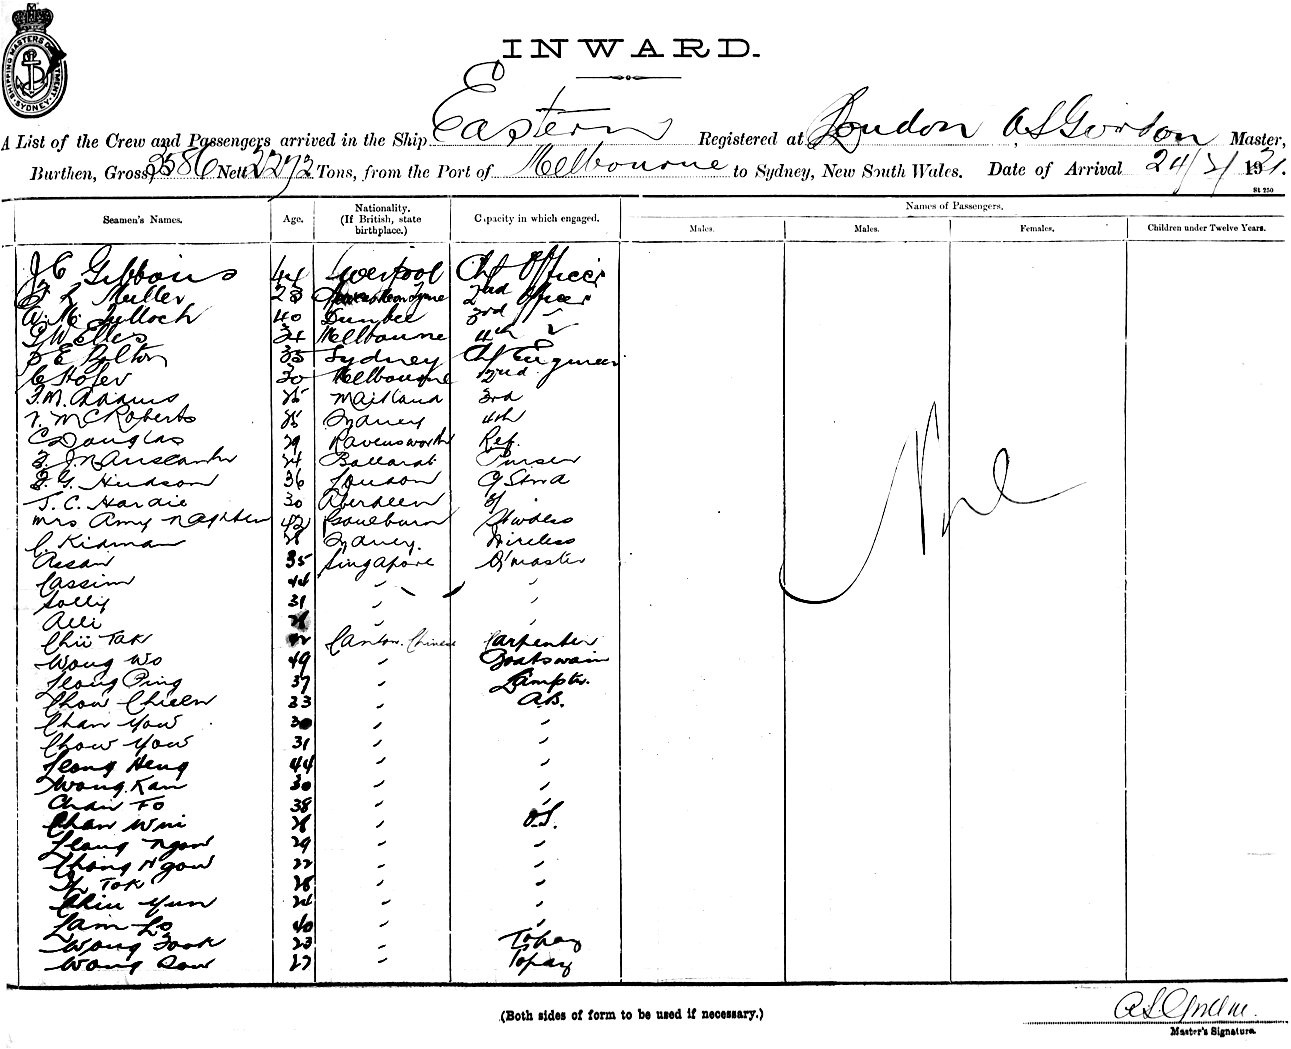 SHIPPING MASTERS DEPARTMENT. SYDNEY
INWARD.
A List of the Crew and Passengers arrived in the Ship Eastern Registered at London A S Gordon Master,
Burthen, Gross 3586 Nett 2272 Tons, from the Port of Melbourne to Sydney, New South Wales. Date of Arrival 24/3/1921.
St 250
Seamen's Names. Age. Nationality. (If British, state birthplace.) Capacity in which engaged. Names of Passengers.
Males. Males. Females. Children under Twelve Years.
J C Gibbons 44 Liverpool Chf Officer
Muller 23 Newcastle on Tyne 2nd Officer
W. M. Tulloch 40 Dundee 3rd "
G W Elles 34 Melbourne 4th "
E Polton 35 Sydney Chf Engineer
C Hofer 30 Melbourne 2nd
F. M. Adams 25 Maitland 3rd
V. McRoberts 25 Sydney 4th
C Douglas 29 Ravensworth Ref.
24 Ballarat Purser
G. Hindson 36 London C Stwd
J. C. Hardie 30 Aberdeen
Mrs Amy 42 Goulburn Stwdess
C. Kidman 28 Sydney. Wireless
Assan 35 Singapore Q'master
Cassim 44 " "
Solly 31 " "
Alli 28 " "
Chii Tak Canton. Chinese Carpenter
Wong Wo 49 " Boatswain
Leong Ping 37 " Lamptr.
Chow Chieen 33 " A.B.
Chan You 30 " "
Chow You 31 " "
Leong Heng 44 " "
Wong Kan 30 " "
Chan Fo 38 " "
Chan Wui 28 " O.S.
Leong Ngow 29 " "
Chong Ngow 22 " "
Tok 28 " "
Chiu Yun 24 " "
Lam Lo 40 " "
Wong Fook 23 " Topaz
Wong Sow 27 " Topaz
Nil
(Both sides of form to be used if necessary.)
A S Gordon
Master's Signature.